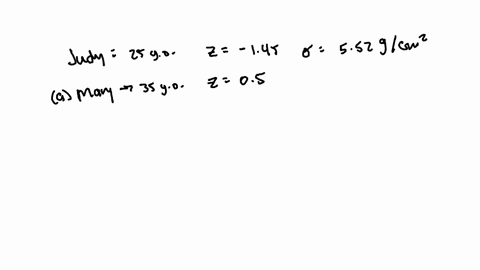 Judy = 25 y.o. z = -1.45 σ = 5.52 g/cm²
(a) Mary → 35 y.o. z = 0.5